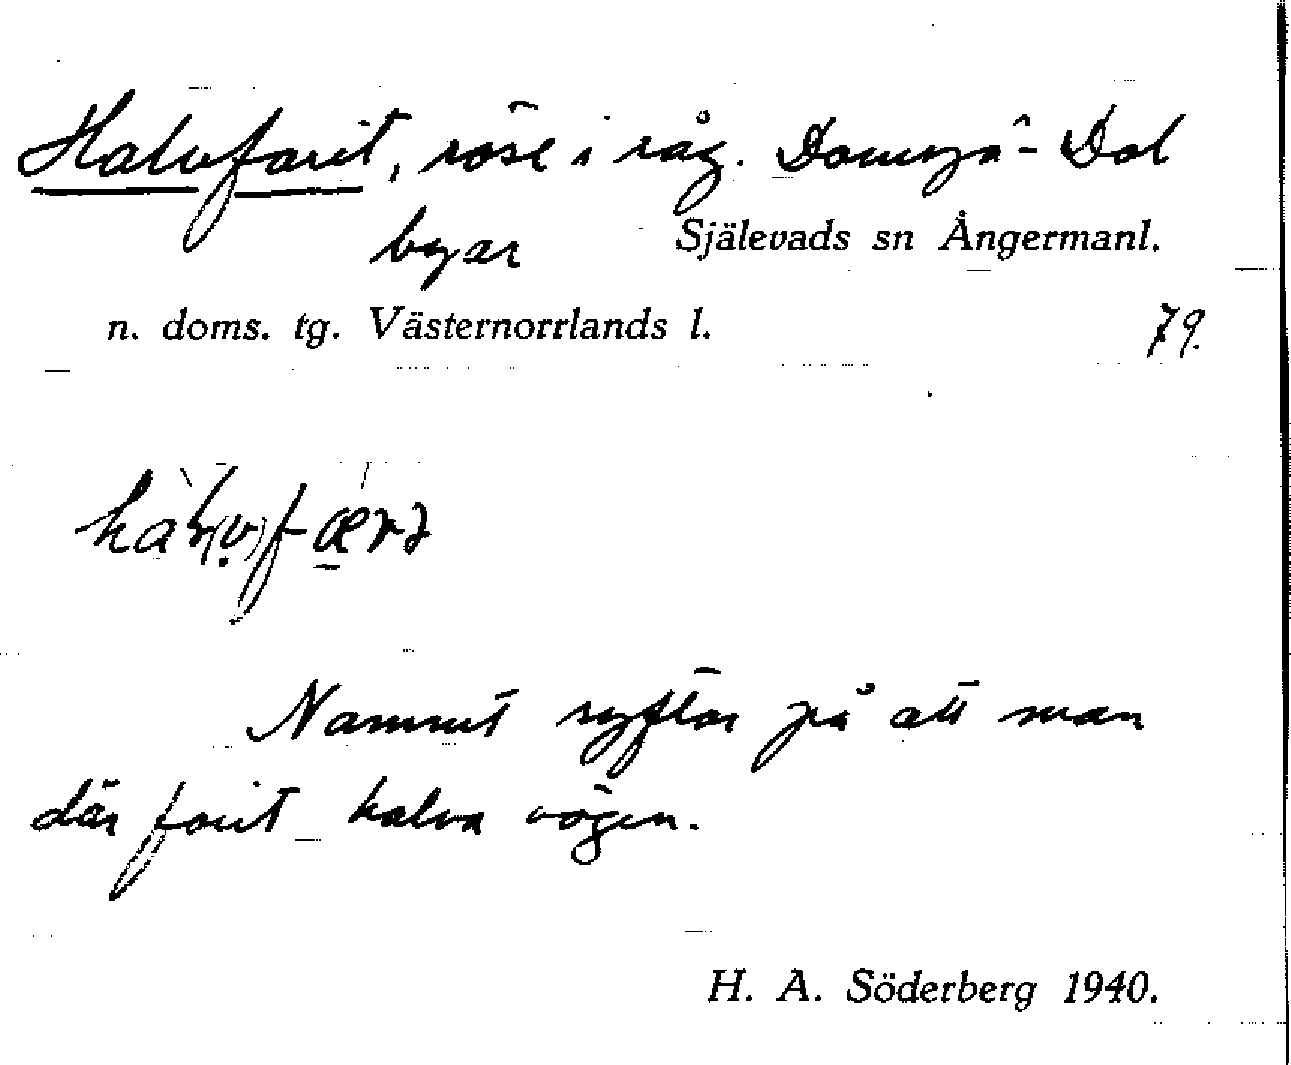 Halvfarit, röse i råg. Domsjö - Dal
byar Själevads sn Ångermanl.
n. doms. tg. Västernorrlands l. 79.
Namnet syftar på att man
där farit halva vägen.
H. A. Söderberg 1940.